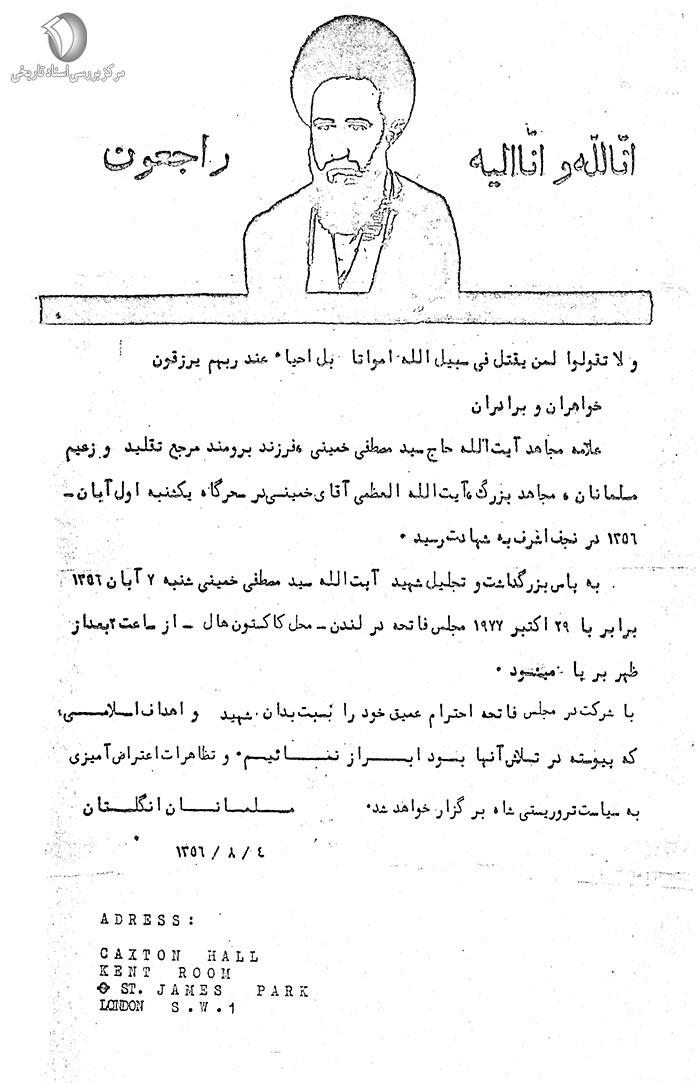 مرکز بررسی اسناد تاریخی
انّا لله و انّا الیه راجعون
و لا تقولوا لمن یقتل فی سبیل الله امواتا بل احیاء عند ربهم یرزقون
خواهران و برادران
علامه مجاهد آیت الله حاج سید مصطفی خمینی ،فرزند برومند مرجع تقلید و زعیم
مسلمانان ، مجاهد بزرگ ،آیت الله العظمی آقای خمینی در سحرگاه یکشنبه اول آبان -
۱۳۵٦ در نجف اشرف به شهادت رسید .
به پاس بزرگداشت و تجلیل شهید آیت الله سید مصطفی خمینی شنبه ۷ آبان ۱۳۵٦
برابر با ۲۹ اکتبر ۱۹۷۷ مجلس فاتحه در لندن - محل کاکستون هال - از ساعت ۲ بعد از
ظهر بر پا میشود .
با شرکت در مجلس فاتحه احترام عمیق خود را نسبت بدان شهید و اهداف اسلامی،
که پیوسته در تلاش آنها بود ابراز نمائیم. و تظاهرات اعتراض آمیزی
به سیاست تروریستی شاه بر گزار خواهد شد. مسلمانان انگلستان
۱۳۵٦ / ۸ / ٤
ADRESS:
CAXTON HALL
KENT ROOM
ST. JAMES PARK
LONDON S.W.1